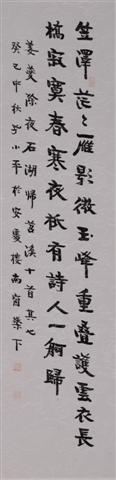 笠澤茫〻雁影微玉峰重疊護雲衣長
橋寂寞春寒夜祇有詩人一舸歸
姜夔除夜石湖歸苕溪十首其七
癸巳中秋子小平於安慶樓南窗燈下